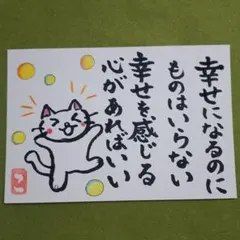 幸せになるのに
ものはいらない
幸せを感じる
心があればいい
こ